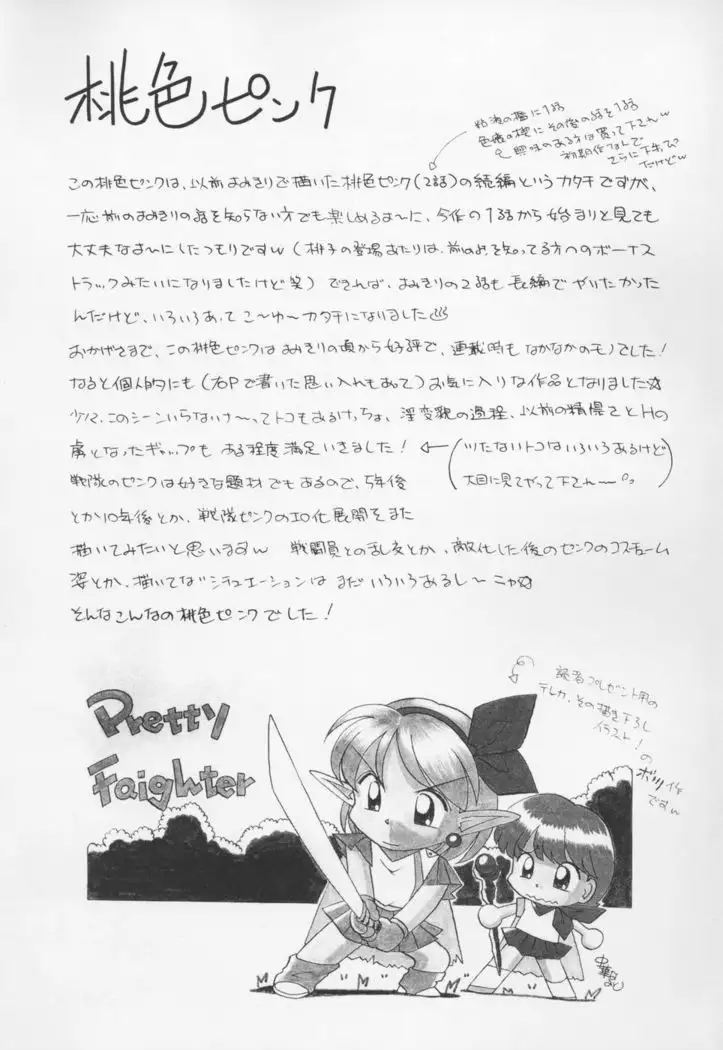 桃色ピンク
粘液の檻に1話
色癒の楔にその後の話を1話
興味のある方は買って下さいw
初期作なんで
さらに下手っぴ
だけどw
この桃色ピンクは、以前よみきりで描いた桃色ピンク(2話)の続編というカタチですが、
一応前のよみきりの話を知らない方でも楽しめるよ〜に、今作の1話から始まりと見ても
大丈夫なよ〜にしたつもりですw(桃子の登場あたりは、前のよみを知ってる方へのボーナス
トラックみたいになりましたけど笑)できれば、よみきりの2話も長編でやりたかった
んだけど、いろいろあってこ〜ゆ〜カタチになりました
おかげさまで、この桃色ピンクはよみきりの頃から好評で、連載時もなかなかのモノでした!
なると個人的にも(右Pで書いた思い入れもあって)お気に入りな作品となりました☆
少々、このシーンいらないけ〜ってトコもあるけっちょ、淫変貌の過程、以前の精悍さとHの
虜となったギャップもある程度満足いきました!
(ツたないトコはいろいろあるけど
大目に見てやって下さい〜。)
戦隊のピンクは好きな題材でもあるので、5年後
とか10年後とか、戦隊ピンクのエロ化展開をまた
描いてみたいと思いますw 戦闘員との乱交とか、敵化した後のピンクのコスチューム
姿とか、描いてないシチュエーションはまだいろいろあるし〜ニャ☆
そんなこんなの桃色ピンクでした!
読者プレゼント用の
テレカ、その描き下ろし
イラスト!
の
ボツ作
ですw
Pretty
Faighter